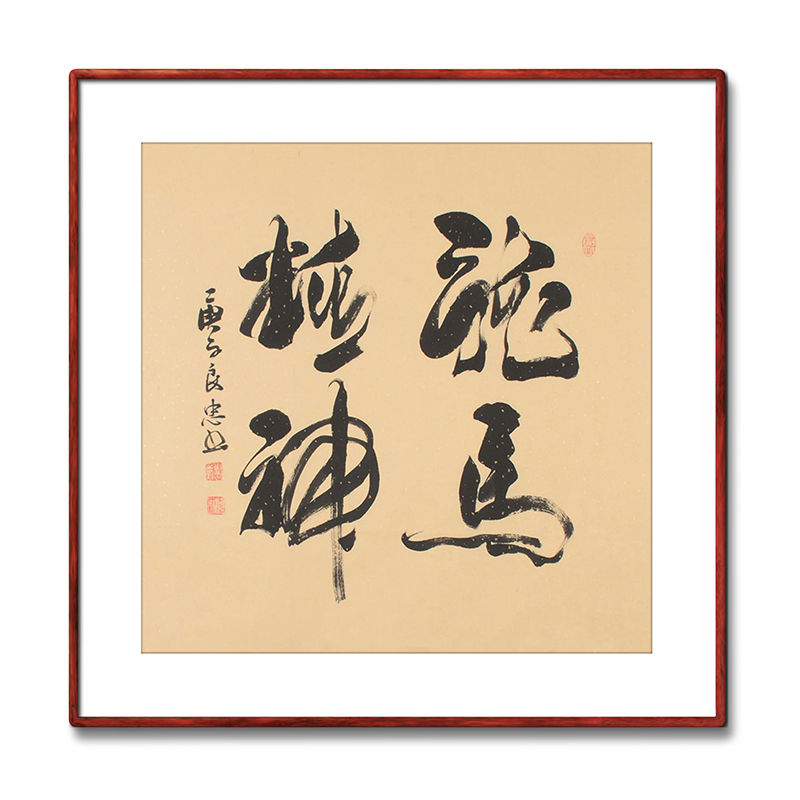 龍馬
精神
庚子良忠书